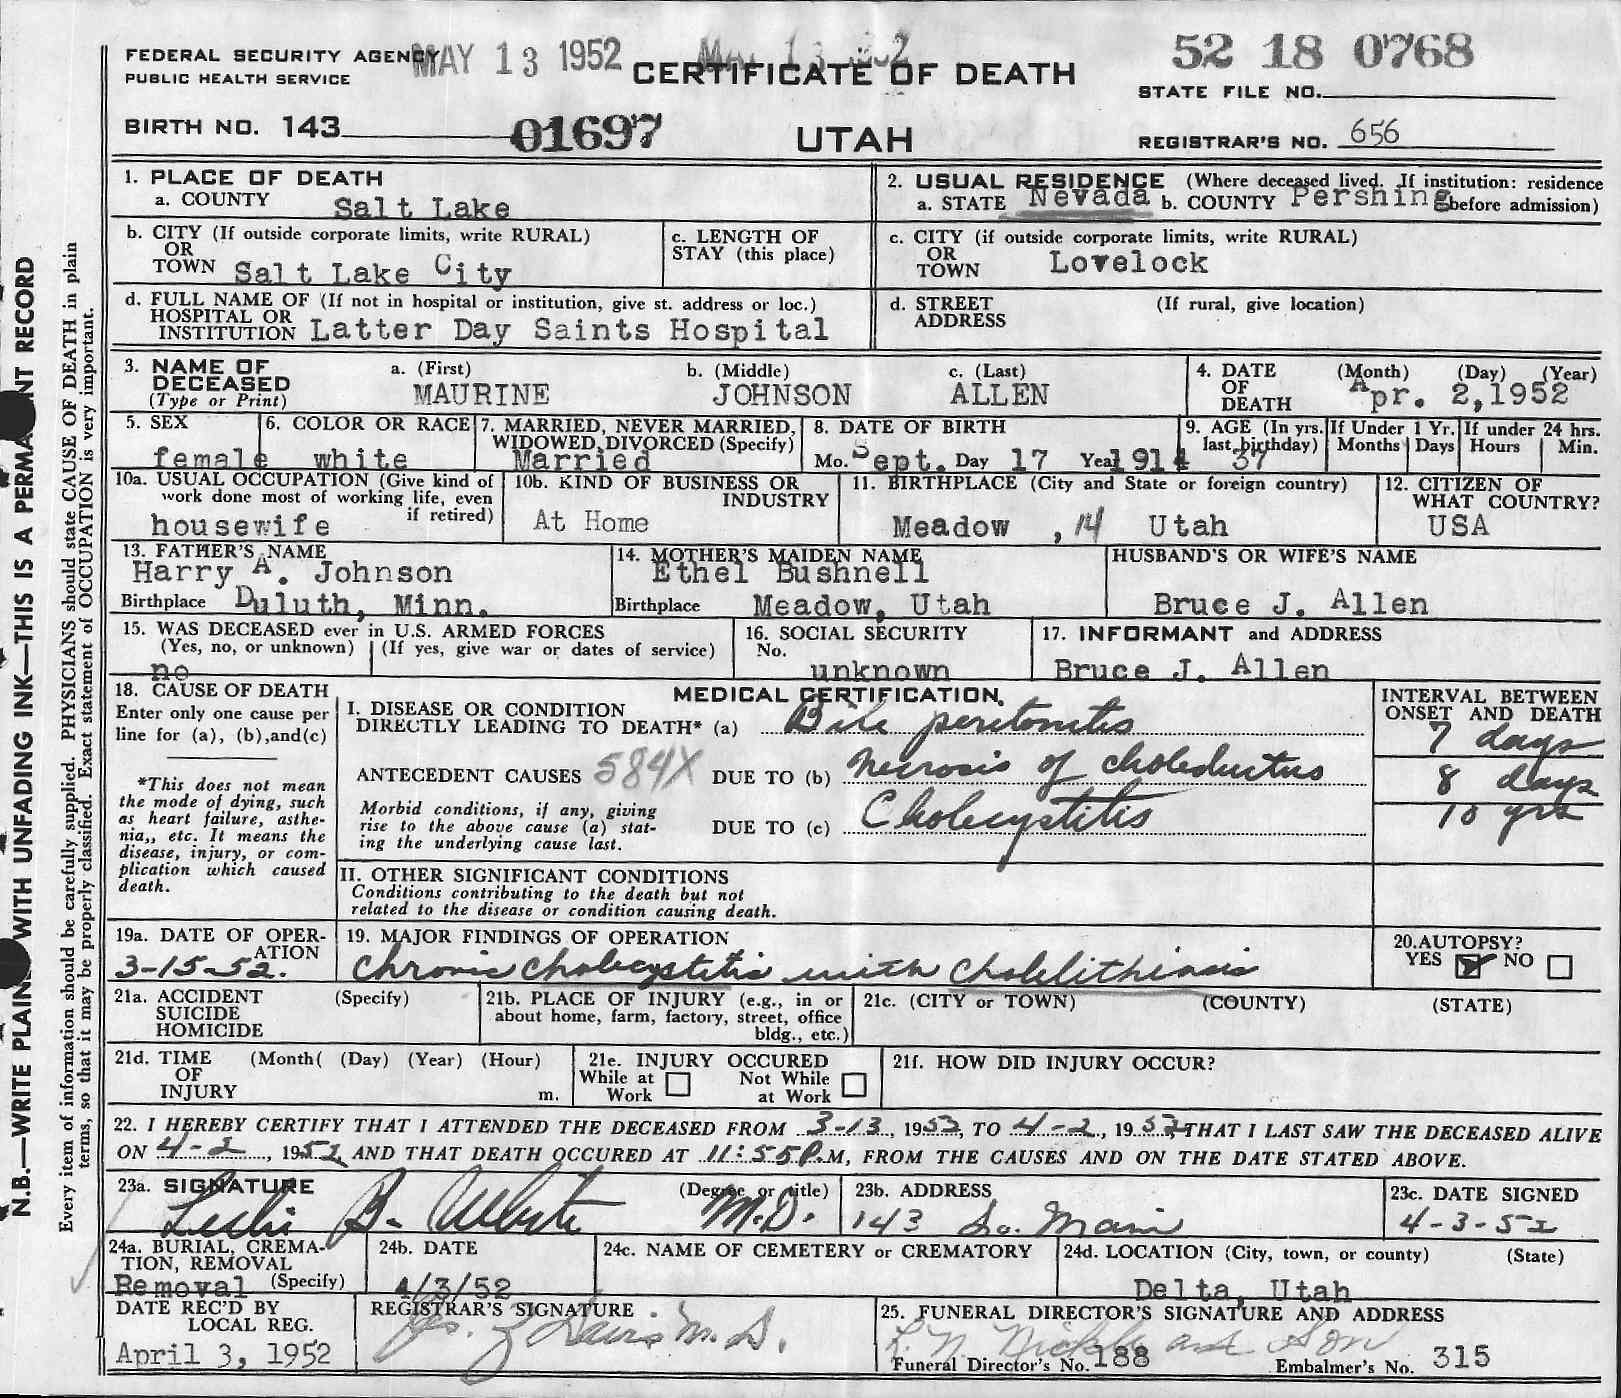 FEDERAL SECURITY AGENCY MAY 13 1952 52 18 0768
PUBLIC HEALTH SERVICE CERTIFICATE OF DEATH STATE FILE NO.
BIRTH NO. 143 01697 UTAH REGISTRAR'S NO. 656
1. PLACE OF DEATH
a. COUNTY Salt Lake
2. USUAL RESIDENCE (Where deceased lived. If institution: residence
a. STATE Nevada b. COUNTY Pershing before admission)
b. CITY (If outside corporate limits, write RURAL)
OR
TOWN Salt Lake City
c. LENGTH OF
STAY (this place)
c. CITY (if outside corporate limits, write RURAL)
OR
TOWN Lovelock
d. FULL NAME OF (If not in hospital or institution, give st. address or loc.)
HOSPITAL OR
INSTITUTION Latter Day Saints Hospital
d. STREET (If rural, give location)
ADDRESS
3. NAME OF
DECEASED
(Type or Print)
a. (First) b. (Middle) c. (Last)
MAURINE JOHNSON ALLEN
4. DATE (Month) (Day) (Year)
OF
DEATH Apr. 2,1952
5. SEX
female
6. COLOR OR RACE
white
7. MARRIED, NEVER MARRIED,
WIDOWED, DIVORCED (Specify)
Married
8. DATE OF BIRTH
Mo. Sept. Day 17 Year 1914
9. AGE (In yrs.
last birthday) 37
If Under 1 Yr.
Months Days
If under 24 hrs.
Hours Min.
10a. USUAL OCCUPATION (Give kind of
work done most of working life, even
if retired)
housewife
10b. KIND OF BUSINESS OR
INDUSTRY
At Home
11. BIRTHPLACE (City and State or foreign country)
Meadow , 14 Utah
12. CITIZEN OF
WHAT COUNTRY?
USA
13. FATHER'S NAME
Harry A. Johnson
Birthplace Duluth, Minn.
14. MOTHER'S MAIDEN NAME
Ethel Bushnell
Birthplace Meadow, Utah
HUSBAND'S OR WIFE'S NAME
Bruce J. Allen
15. WAS DECEASED ever in U.S. ARMED FORCES
(Yes, no, or unknown) (If yes, give war or dates of service)
no
16. SOCIAL SECURITY
No.
unknown
17. INFORMANT and ADDRESS
Bruce J. Allen
18. CAUSE OF DEATH
Enter only one cause per
line for (a), (b),and(c)
*This does not mean
the mode of dying, such
as heart failure, asthe-
nia,, etc. It means the
disease, injury, or com-
plication which caused
death.
MEDICAL CERTIFICATION
I. DISEASE OR CONDITION
DIRECTLY LEADING TO DEATH* (a) Bile peritonitis
ANTECEDENT CAUSES 584X DUE TO (b) necrosis of choleductus
Morbid conditions, if any, giving
rise to the above cause (a) stat-
ing the underlying cause last.
DUE TO (c) Cholecystitis
INTERVAL BETWEEN
ONSET AND DEATH
7 days
8 days
10 yrs
II. OTHER SIGNIFICANT CONDITIONS
Conditions contributing to the death but not
related to the disease or condition causing death.
19a. DATE OF OPER-
ATION
3-15-52.
19. MAJOR FINDINGS OF OPERATION
Chronic cholecystitis with cholelithiasis
20.AUTOPSY?
YES NO
21a. ACCIDENT (Specify)
SUICIDE
HOMICIDE
21b. PLACE OF INJURY (e.g., in or
about home, farm, factory, street, office
bldg., etc.)
21c. (CITY or TOWN) (COUNTY) (STATE)
21d. TIME (Month( (Day) (Year) (Hour)
OF
INJURY m.
21e. INJURY OCCURED
While at Not While
Work at Work
21f. HOW DID INJURY OCCUR?
22. I HEREBY CERTIFY THAT I ATTENDED THE DECEASED FROM 3-13, 1952, TO 4-2, 1952, THAT I LAST SAW THE DECEASED ALIVE
ON 4-2, 1952, AND THAT DEATH OCCURED AT 11:55P.M, FROM THE CAUSES AND ON THE DATE STATED ABOVE.
23a. SIGNATURE (Degree or title)
Leslie B. White M.D.
23b. ADDRESS
143 So. Main
23c. DATE SIGNED
4-3-52
24a. BURIAL, CREMA-
TION, REMOVAL
Removal (Specify)
24b. DATE
4/3/52
24c. NAME OF CEMETERY or CREMATORY
24d. LOCATION (City, town, or county) (State)
Delta, Utah
DATE REC'D BY
LOCAL REG.
April 3, 1952
REGISTRAR'S SIGNATURE
M.D.
25. FUNERAL DIRECTOR'S SIGNATURE AND ADDRESS
and Son
Funeral Director's No. 188 Embalmer's No. 315
N.B.—WRITE PLAIN WITH UNFADING INK—THIS IS A PERMA NT RECORD
Every item of information should be carefully supplied. PHYSICIANS should state CAUSE OF DEATH in plain
terms, so that it may be properly classified. Exact statement of OCCUPATION is very important.